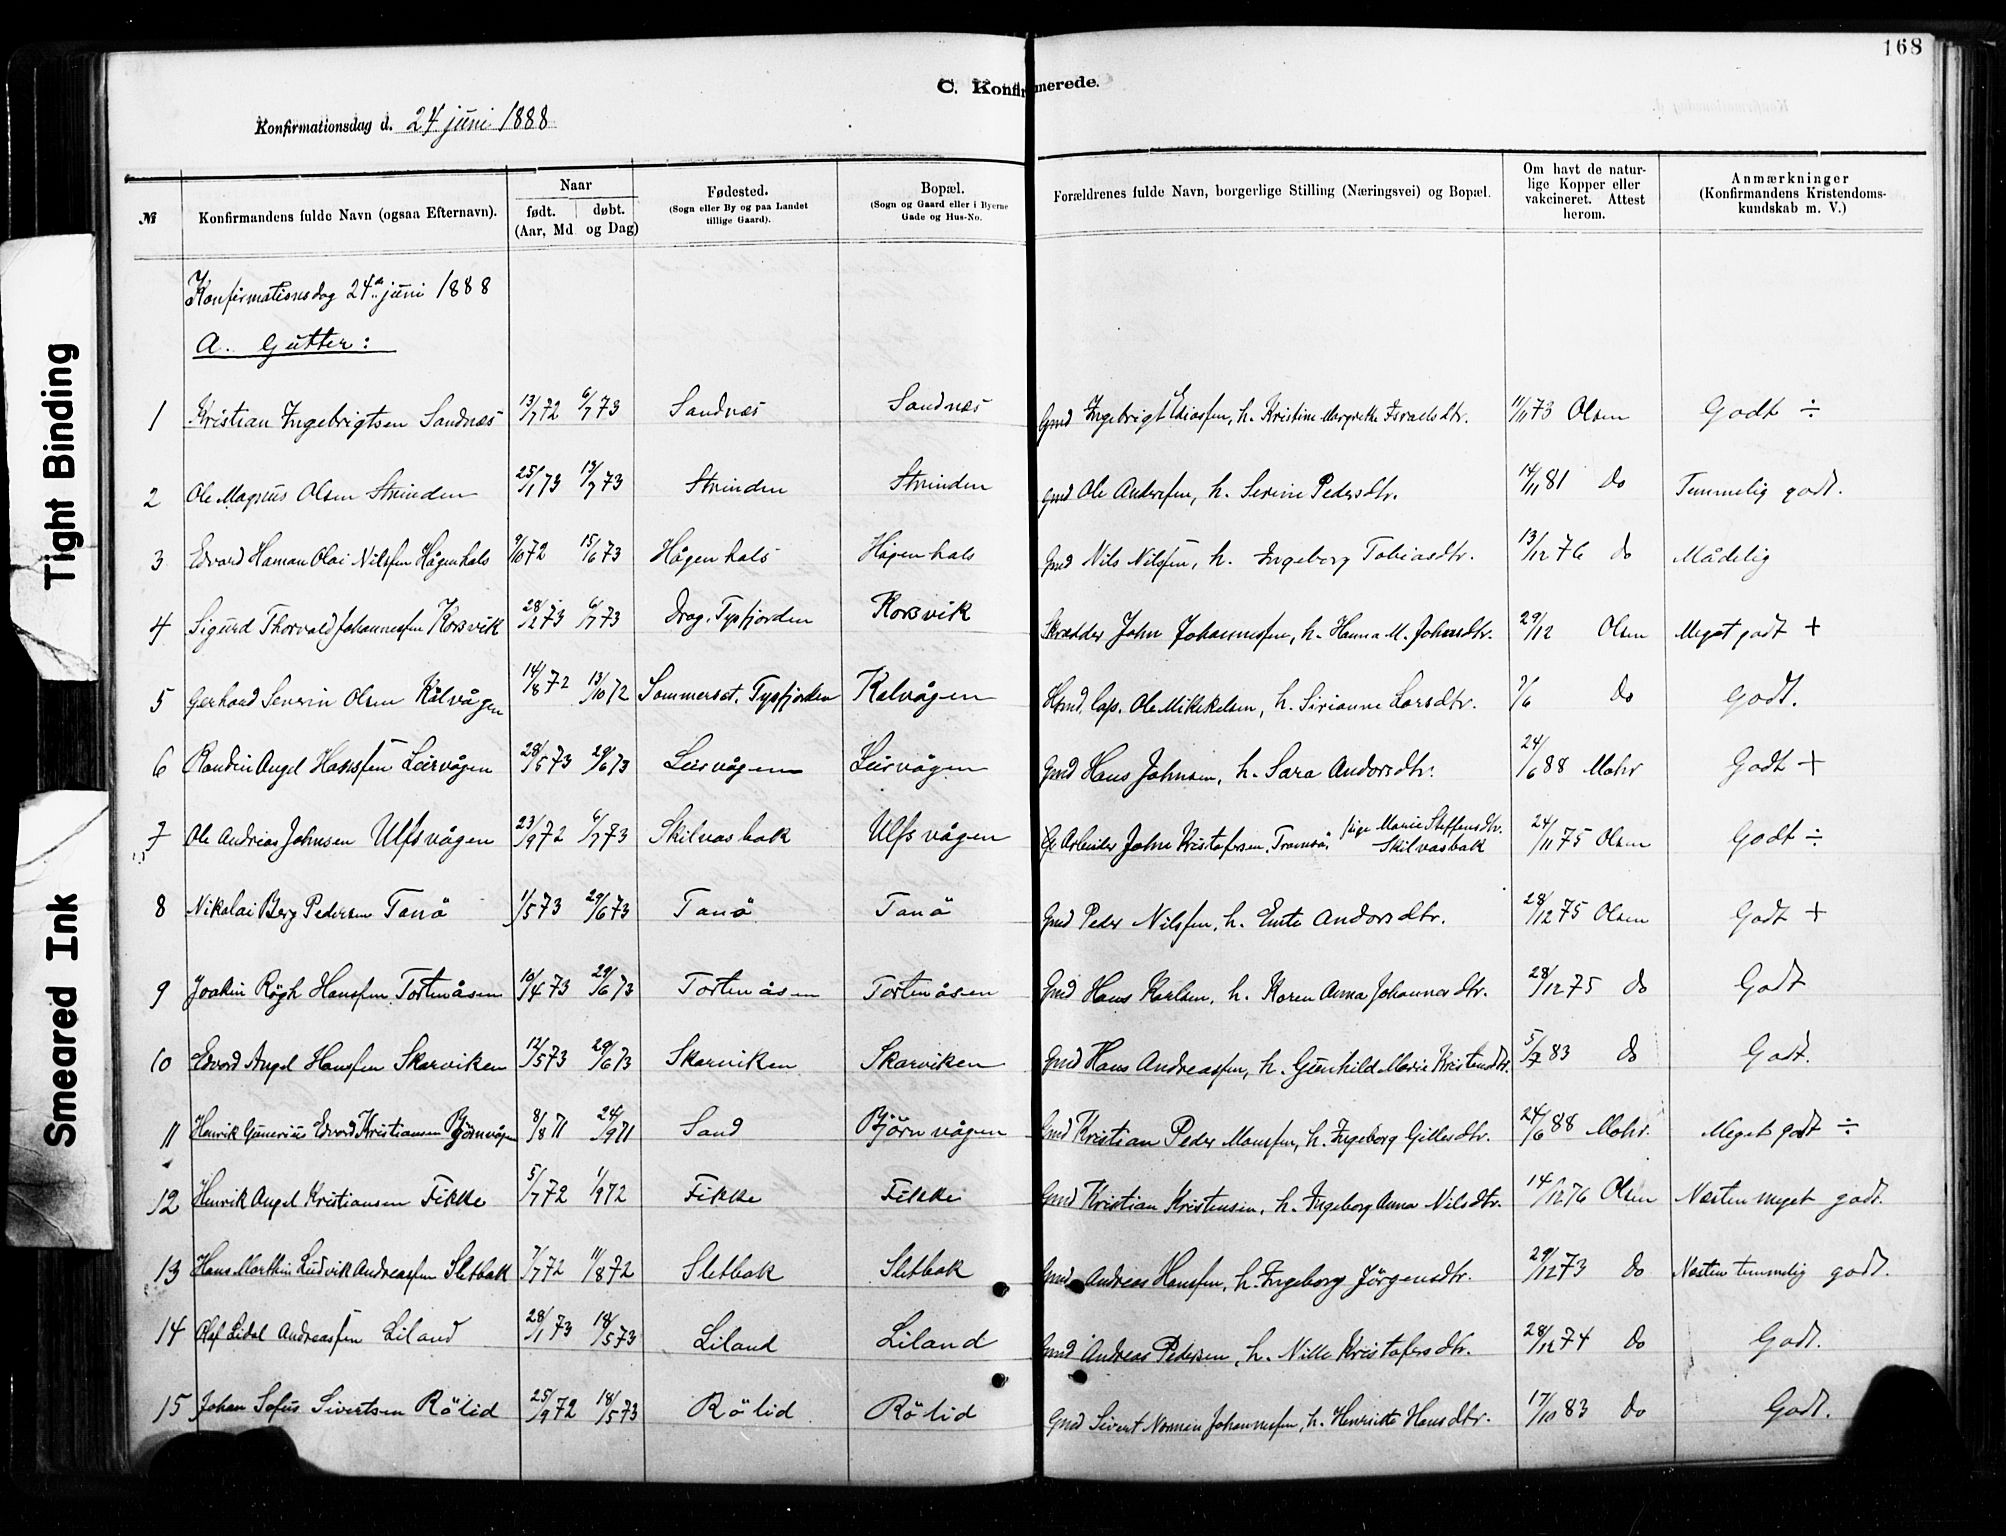 168
C. Konfirmerede.
Konfirmationsdag d. 24 juni 1888
№ Konfirmandens fulde Navn (ogsaa Efternavn). Naar født. døbt. (Aar, Md og Dag) Fødested. (Sogn eller By og paa Landet tillige Gaard). Bopæl. (Sogn og Gaard eller i Byerne Gade og Hus-No. Forældrenes fulde Navn, borgerlige Stilling (Næringsvei) og Bopæl. Om havt de naturlige Kopper eller vakcineret. Attest herom. Anmærkninger (Konfirmandens Kristendomskundskab m. V.)
Konfirmationsdag 24de juni 1888
A. Gutter:
1 Kristian Ingebrigtsen Sandnæs 13/7 72 6/7 73 Sandnæs Sandnæs Gmd Ingebrigt Eliassen, h. Kristine Margrethe Israelsdtr. 11/11 73 Olsen Godt ÷
2 Ole Magnus Olsen Strinden 25/1 73 13/7 73 Strinden Strinden Gmd Ole Andersen, h. Serine Pedersdtr. 14/11 81 Do Temmelig godt.
3 Edvard Haman Olai Nilssen Hågenhals 9/10 72 15/6 73 Hågenhals Hågenhals Gmd Nils Nilssen, h. Ingeborg Tobiasdtr. 13/12 76 Do Mådelig
4 Sigurd Thorvald Johannessen Korsvik 28/2 73 6/7 73 Drag, Tysfjorden Korsvik Skrædder John Johannessen, h. Hanna M. Johnsdtr. 29/12 Olsen Meget godt +
5 Gerhard Severin Olsen Kålvågen 14/8 72 13/10 72 Sommerset, Tysfjorden Kalvågen Hmd. lap. Ole Mikkelsen, h. Sirianne Larsdtr. 7/6 Do Godt.
6 Randin Angel Hanssen Leirvågen 28/5 73 29/6 73 Leirvågen Leirvågen Gmd Hans Johnsen, h. Sara Andorsdtr. 24/6 88 Mohr Godt +
7 Ole Andreas Johnsen Ulfsvågen 23/9 72 6/7 73 Skilvasbak Ulfsvågen Arbeider John Kristofersen, Tromsö, pige Marie Steffensdtr. Skilvasbak 24/11 75 Olsen Godt ÷
8 Nikolai Berg Pedersen Tanö 1/5 73 29/6 73 Tanö Tanö Gmd Peder Nilssen, h. Ente Andorsdtr. 28/12 75 Olsen Godt +
9 Joakin Rögh Hanssen Tortenåsen 10/4 73 29/6 73 Tortenåsen Tortenåsen Gmd Hans Karlsen, h. Karen Anna Johannesdtr. 28/12 75 Do Godt
10 Edvard Angel Hanssen Skarviken 12/5 73 29/6 73 Skarviken Skarviken Gmd Hans Andreassen, h. Gunhild Marie Kristensdtr. 5/7 83 Do Godt.
11 Henrik Gunerius Edvard Kristiansen Björnvågen 8/8 71 24/9 71 Sand Björnvågen Gmd Kristian Peder Monssen, h. Ingeborg Gillesdtr. 24/6 88 Mohr. Meget godt ÷
12 Henrik Angel Kristiansen Fikke 5/7 72 1/9 72 Fikke Fikke Gmd Kristian Kristensen, h. Ingeborg Anna Nilsdtr. 14/12 76 Olsen Næsten meget godt.
13 Hans Marthin Ludvik Andreassen Sletbak 7/7 72 11/8 72 Sletbak Sletbak Gmd Andreas Hanssen, h. Ingeborg Jörgensdtr. 29/12 73 Do Næsten temmelig godt.
14 Olaf Lidal Andreassen Liland 28/1 73 18/5 73 Liland Liland Gmd Andreas Pedersen, h. Nille Kristofersdtr. 28/12 74 Do Godt.
15 Johan Sofus Sivertsen Rölid 25/9 72 18/5 73 Rölid Rölid Gmd Sivert Norman Johannessen, h. Henrikke Hansdtr. 17/10 83 Do Godt.
Tight Binding
Smeared Ink